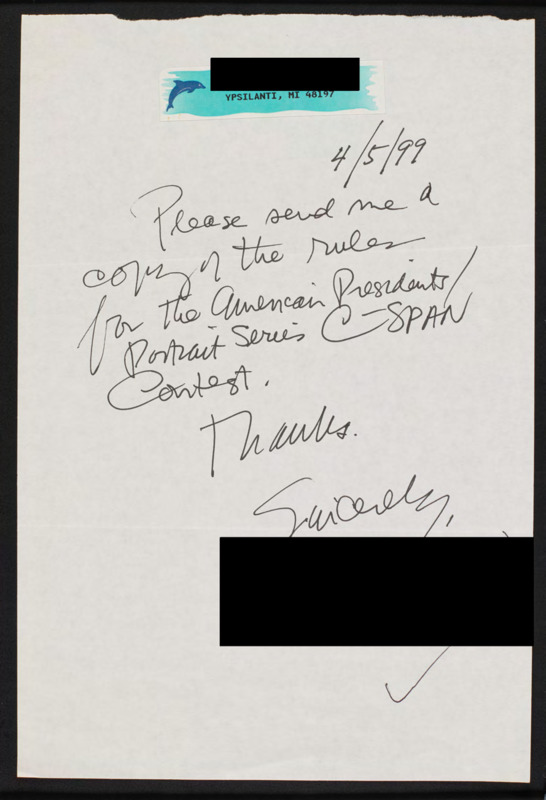 YPSILANTI, MI 48197
4/5/99
Please send me a
copy of the rules
for the American Presidents/
Portrait Series C-SPAN
Contest.
Thanks.
Sincerely,